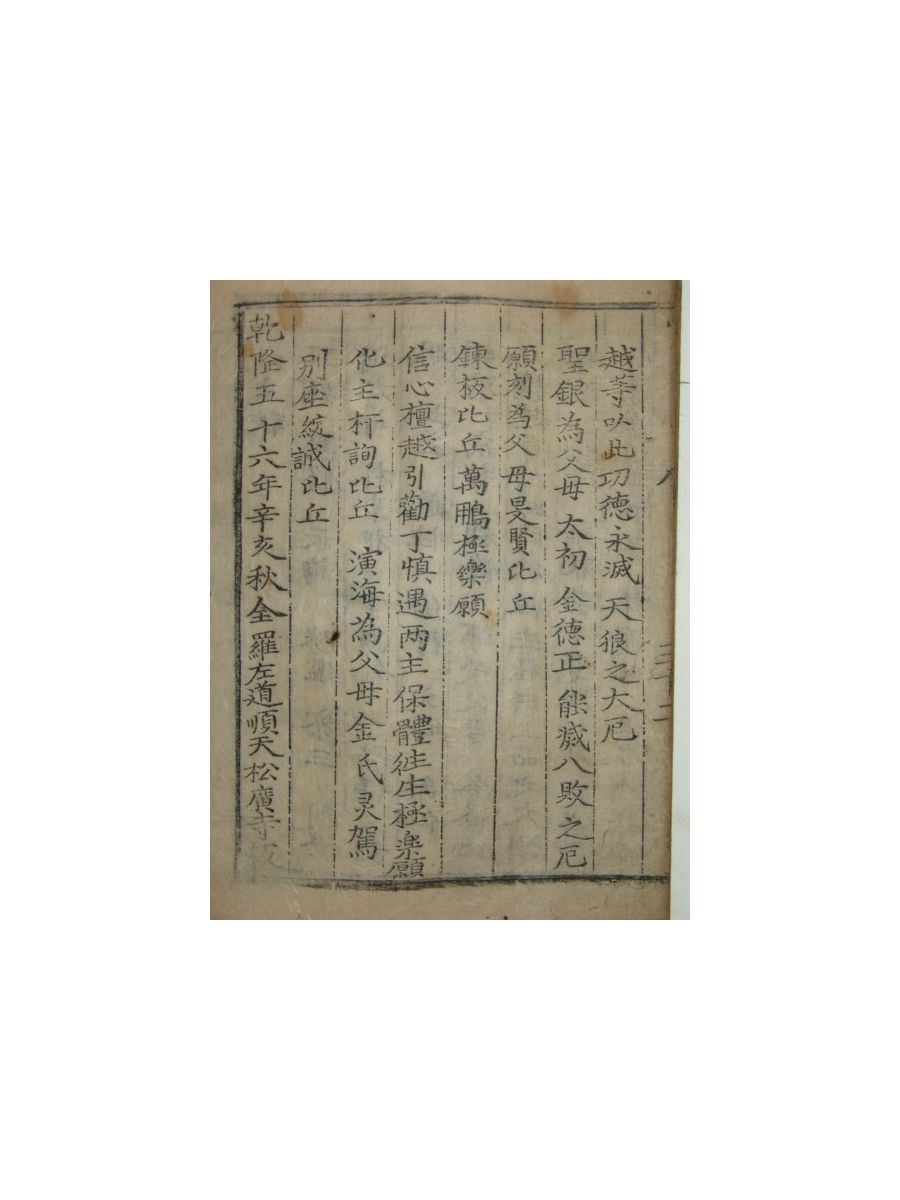 越等以此功德永滅 天狼之大厄
聖銀為父母 太初 金德正 能滅八敗之厄
願刻為父母旻賢比丘
鍊板比丘萬鵬極樂願
信心檀越引勸丁慎遇兩主保體徃生極楽願
化主杆詢比丘 演海為父母金氏灵駕
別座綻誠比丘
乾隆五十六年辛亥秋全羅左道順天松廣寺